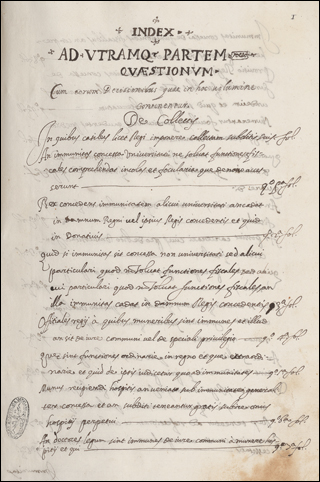 1
INDEX
AD VTRAMQ PARTEM
QVÆSTIONVM
Cum earum Decisionibus quæ in hoc volumine
continentur
De Collectis
In quibus casibus licet Regi imponere collectam subditis suis fol.
An immunitas concessa Universitati ne soluat functiones fis
cales comprehendat incolas et focularios que de novo acces
serunt fol.
Rex concedens immunitatem alicui universitati an cedat
in damnum Regni vel ipsius Regis concedentis et quid
in Donativis fol.
quid si immunitas sit concessa non universitati sed alicui
particulari quod non soluat functiones fiscales
cui particulari quod non soluat functiones fiscales an
illa immunitas cadat in damnum Regis concedentis fol.
Officiales regii à quibus muneribus sint immunes et illud
an sit de iure communi vel de speciali privilegio fol.
quæ sint functiones ordinariæ in regno et quæ
nariæ et quid de ipsis judicetur quoad immunitates fol.
Munus recipiendi hospites an veniat sub immunitate generali
ter concessa et an subditi teneantur
hospitii perpetui fol.
An doctores legum sint immunes de iure communi à munere hos
pitii et qui fol.